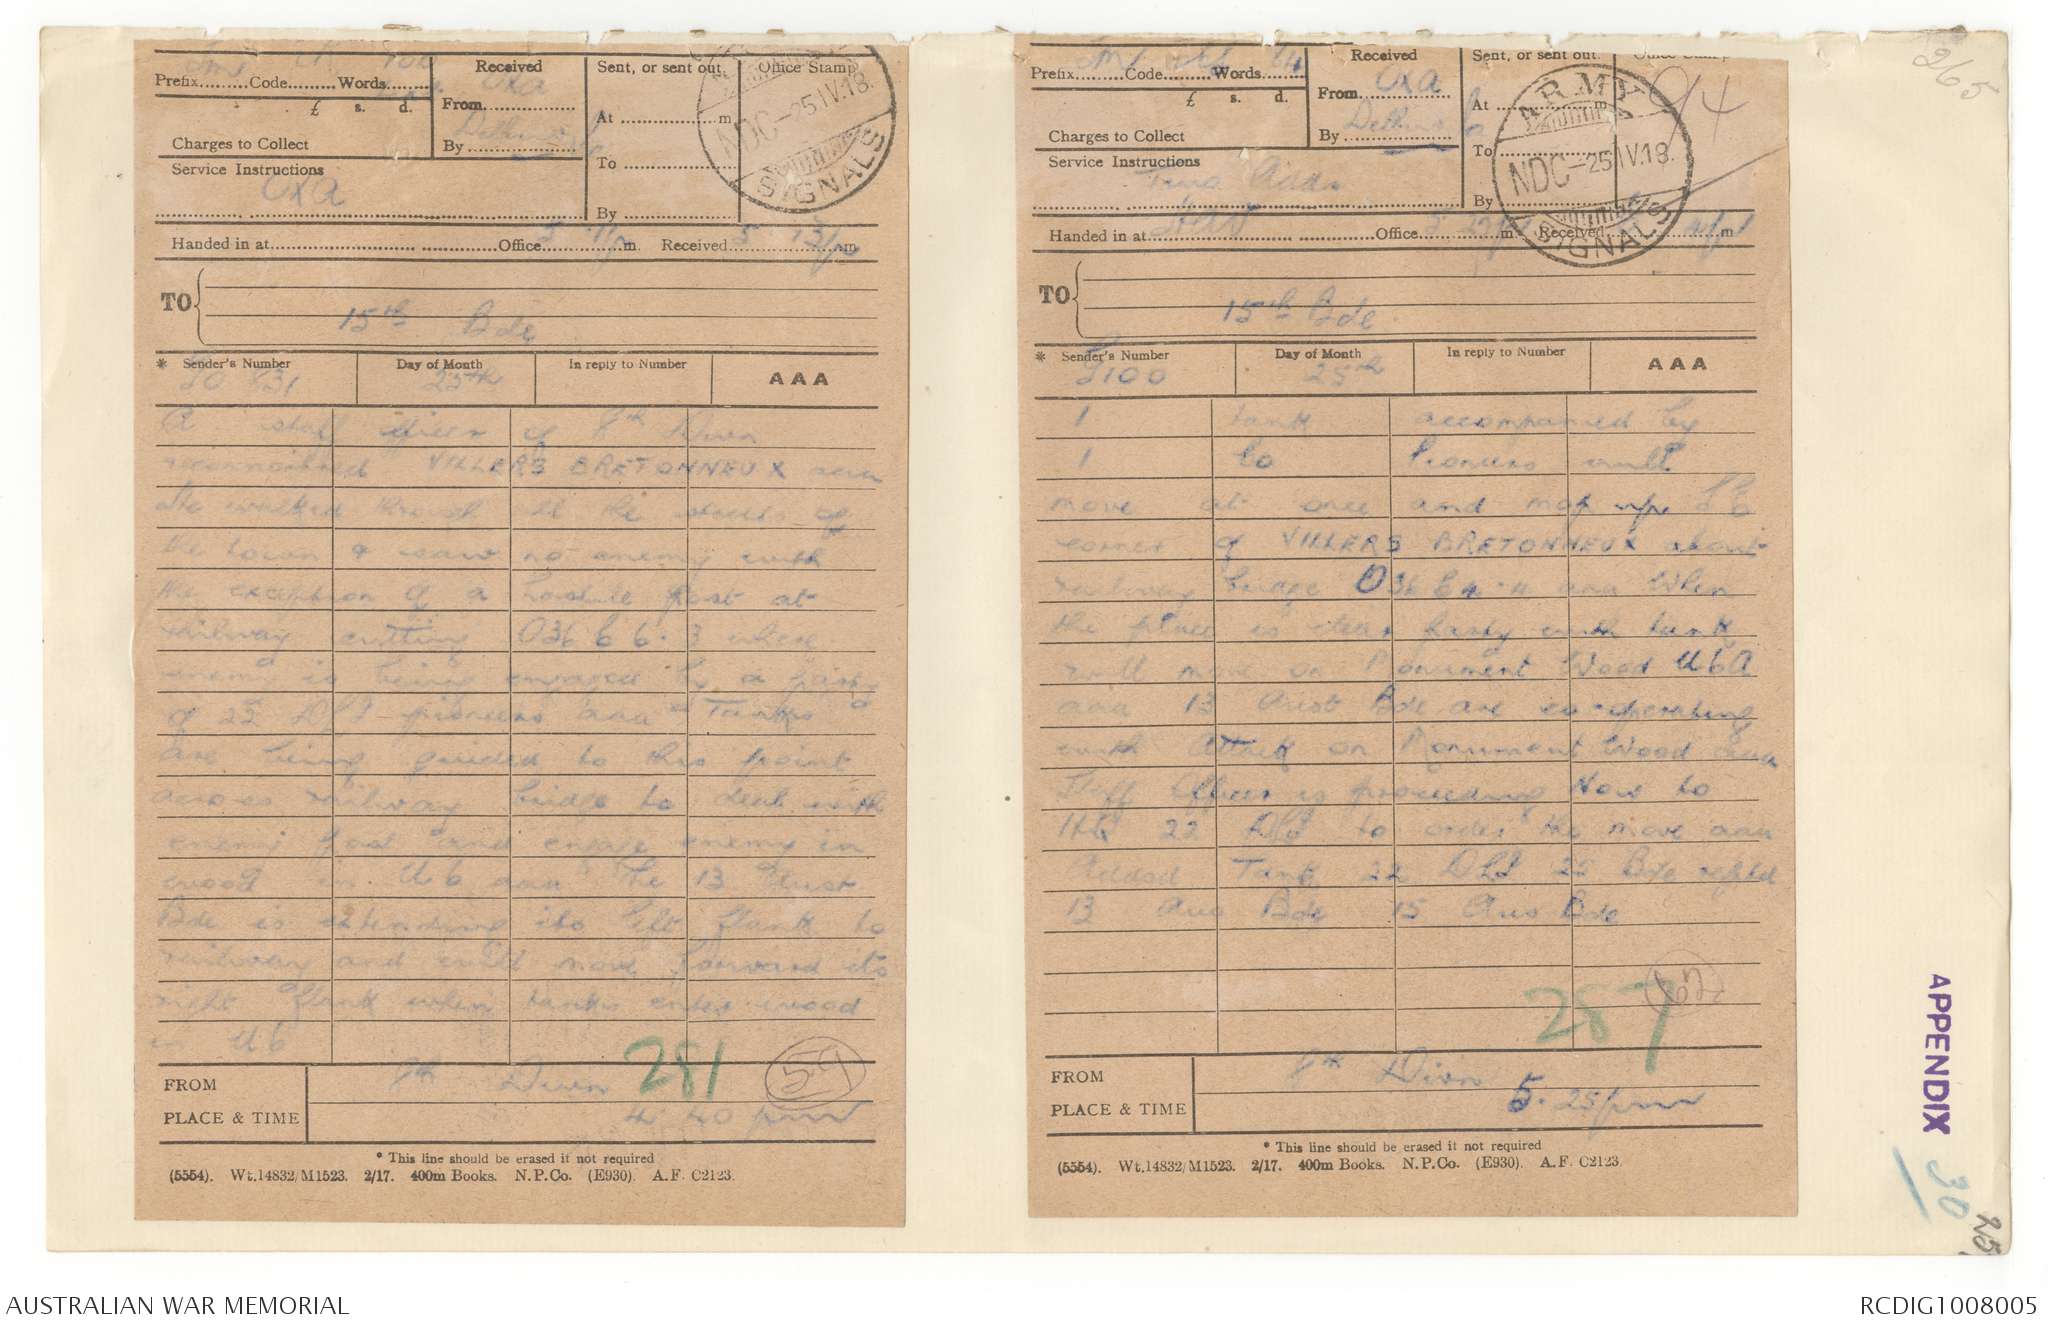 265
Prefix Code Words
£ s. d.
Charges to Collect
Service Instructions
OXA
Received
From OXA
By
Sent, or sent out.
At m
To
By
Office Stamp
NDC-25.IV.18.
SIGNALS
Handed in at Office 5 m Received 5 13/p m
TO
15th Bde
* Sender's Number Day of Month In reply to Number AAA
25th
A staff officer of 8th Divn
reconnoitred VILLERS BRETONNEUX aaa
He walked through all the streets of
the town & saw no enemy with
the exception of a hostile post at
railway cutting O36 b 6.3 where
enemy is being engaged by a party
of 22 DLI pioneers aaa Tanks
are being guided to this point
across railway bridge to deal with
enemy post and engage enemy in
wood in U6 aaa The 13 Aust
Bde is extending its left flank to
railway and will move forward its
right flank when tanks enter wood
in U6
281
59
FROM 8th Divn
PLACE & TIME 4 40 pm
* This line should be erased if not required
(5554). Wt.14832/M1523. 2/17. 400m Books. N.P.Co. (E930). A.F. C2123.
Prefix Code Words
£ s. d.
Charges to Collect
Service Instructions
Two Adds
Received
From OXA
By
Sent, or sent out.
At m
To
By
Office Stamp
94
ARMY
NDC-25.IV.18.
SIGNALS
Handed in at Office m Received m
TO
15th Bde
* Sender's Number Day of Month In reply to Number AAA
G100 25th
1 tank accompanied by
1 Co Pioneers will
move at once and mop up SE
corner of VILLERS BRETONNEUX about
railway bridge O36 b 4.4 aaa When
the place is clear party with tank
will move on Monument Wood U6A
aaa 13 Aust Bde are co-operating
with Attack on Monument Wood aaa
Staff Officer is proceeding Now to
HQ 22 DLI to order the move aaa
Addsd Tank 22 DLI 25 Bde reptd
13 Aus Bde 15 Aus Bde
287
62
FROM 8th Divn
PLACE & TIME 5.25 pm
* This line should be erased if not required
(5554). Wt.14832/M1523. 2/17. 400m Books. N.P.Co. (E930). A.F. C2123.
APPENDIX 30
25
AUSTRALIAN WAR MEMORIAL
RCDIG1008005